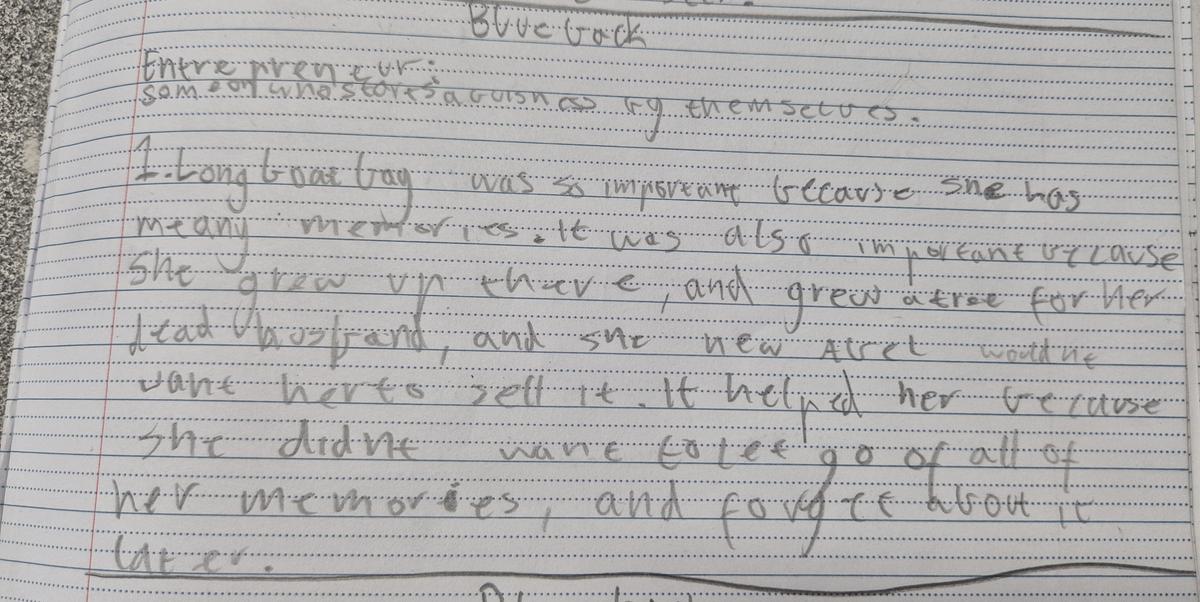 Blueback
Entrepreneur:
someon who stortes a buisness by themselves.
1. Longboat bay was so important because she has
meany memories. It was also important because
she grew up there, and grew a tree for her
dead husband, and she new Abel wouldnt
want her to sell it. It helped her because
she didnt want to let go of all of
her memories, and forget about it
later.